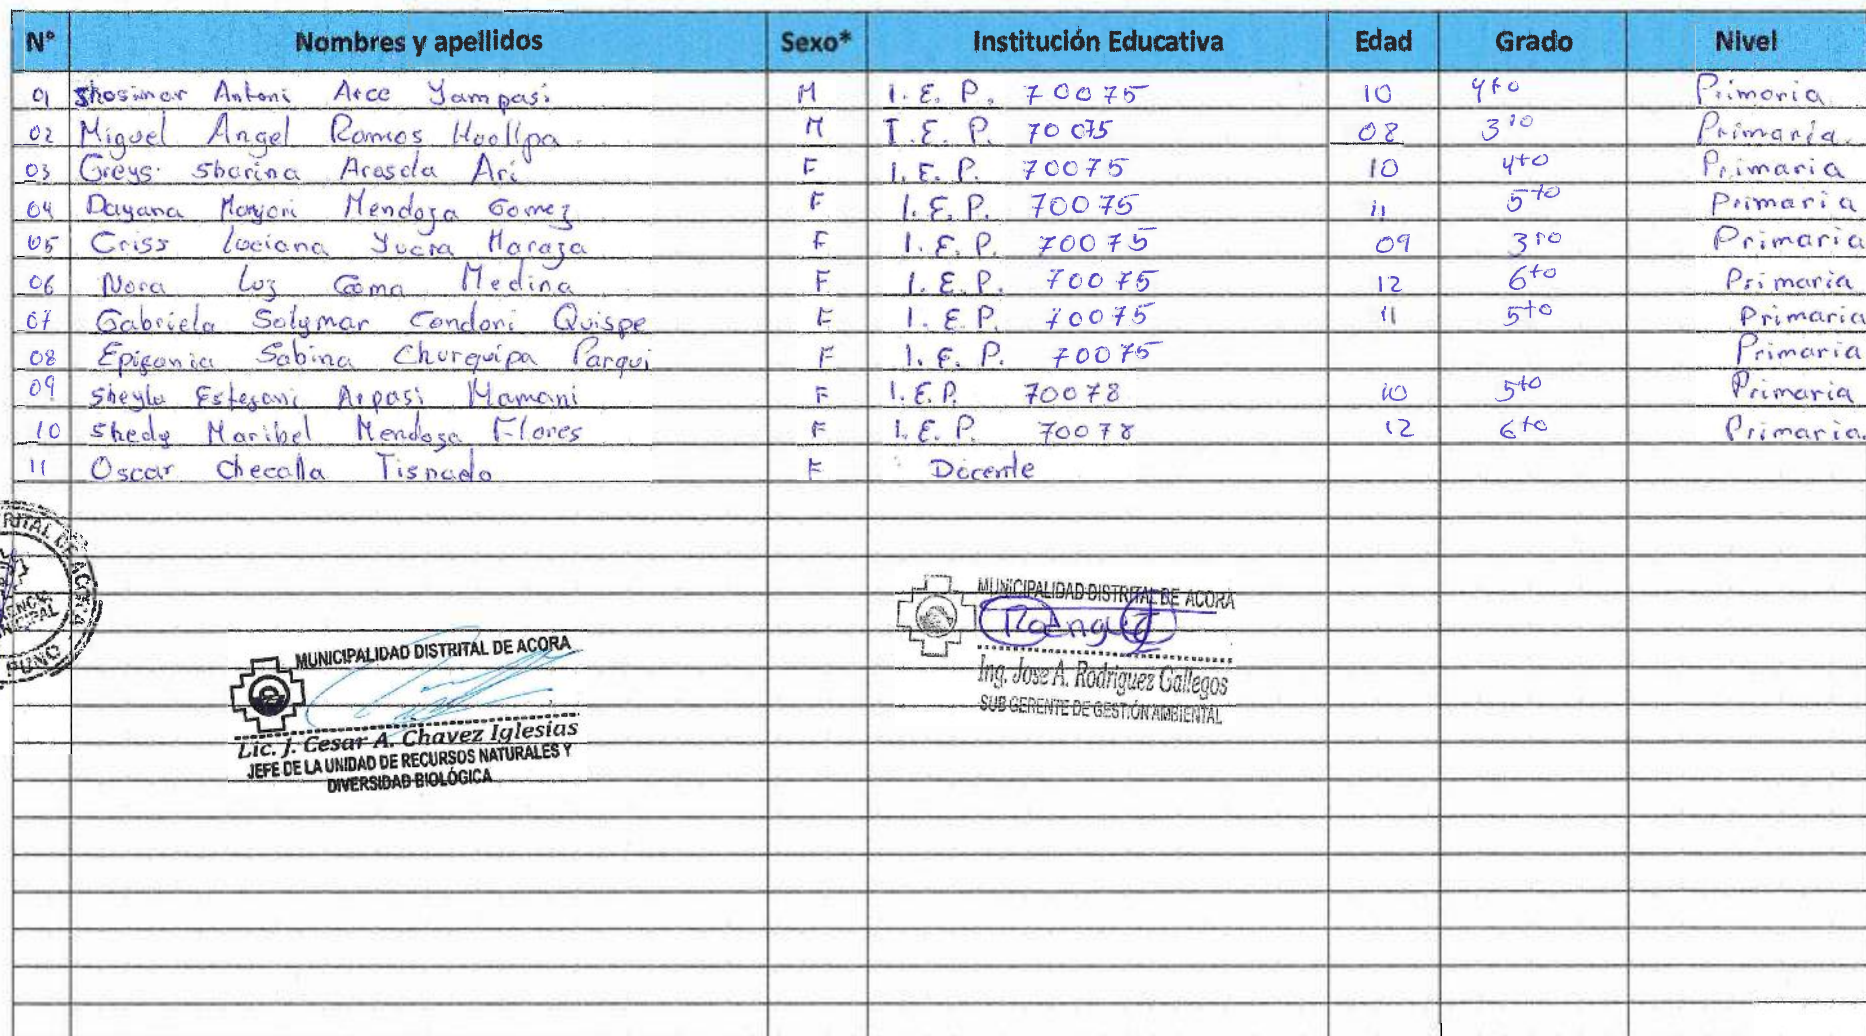 N° Nombres y apellidos Sexo* Institución Educativa Edad Grado Nivel
01 Shosimar Antoni Arce Yampasi M I. E. P. 70075 10 4to Primaria
02 Miguel Angel Ramos Huallpa M I. E. P. 70075 08 3ro Primaria
03 Greys Sharina Arasola Ari F I. E. P. 70075 10 4to Primaria
04 Dayana Maryori Mendoza Gomez F I. E. P. 70075 11 5to Primaria
05 Criss Luciana Yucra Maraza F I. E. P. 70075 09 3ro Primaria
06 Nora Luz Coma Medina F I. E. P. 70075 12 6to Primaria
07 Gabriela Solymar Condori Quispe F I. E. P. 70075 11 5to Primaria
08 Epifania Sabina Churquipa Parqui F I. E. P. 70075 Primaria
09 Sheyla Estefani Arpasi Mamani F I. E. P. 70078 10 5to Primaria
10 Shedy Maribel Mendoza Flores F I. E. P. 70078 12 6to Primaria
11 Oscar Checalla Tisnado F Docente
RITAL DE ACORA
PUNO
MUNICIPALIDAD DISTRITAL DE ACORA
Ing. Jose A. Rodriguez Gallegos
SUB GERENTE DE GESTIÓN AMBIENTAL
MUNICIPALIDAD DISTRITAL DE ACORA
Lic. J. Cesar A. Chavez Iglesias
JEFE DE LA UNIDAD DE RECURSOS NATURALES Y
DIVERSIDAD BIOLÓGICA